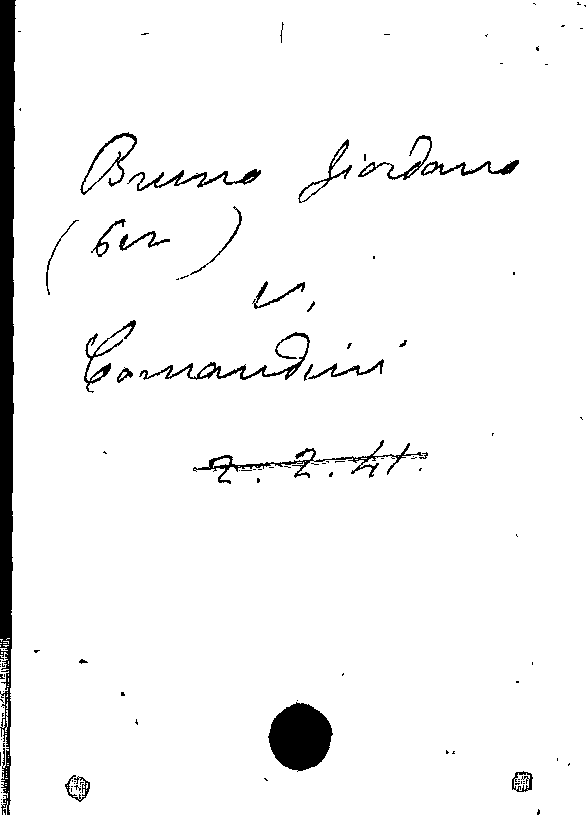 Bruno Giordano
(Ger)
v.
Comandini
2. 2. 41.